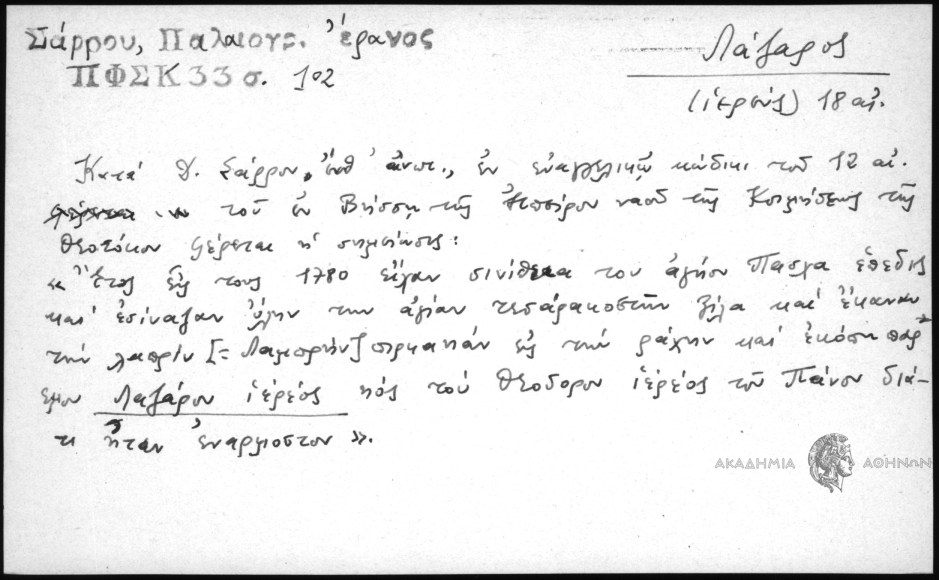 Σάρρου, Παλαιογρ. ἔρανος
ΠΦΣΚ 33 σ. 102
Λάζαρος
(ἱερεύς) 18 αἰ.
Κατὰ Δ. Σάρρον, ἔνθ' ἀνωτ., ἐν εὐαγγελικῷ κώδικι τοῦ 12 αἰ.
τοῦ ἐν Βήσσῃ τῆς Ἠπείρου ναοῦ τῆς Κοιμήσεως τῆς
Θεοτόκου φέρεται ἡ σημείωσις:
« Ἔτος εἰς τους 1780 εἶχαν σινίθεια του ἁγήου Πασχα ἐπεδις
και ἐσίναζαν ὅλην την ἁγίαν τεσάρακοστην ξίλα και ἔκαναν
την λαπρίν [= Λαμπρὴν] πιρκαϊάν εἰς την ράχην και ἐκόπη παρ
εμου Λαζάρου ἱερέος ηός του Θεοδορου ἱερέος του Πάνου διά-
τι ἦταν ἐναρμοστον ».
ΑΚΑΔΗΜΙΑ ΑΘΗΝΩΝ